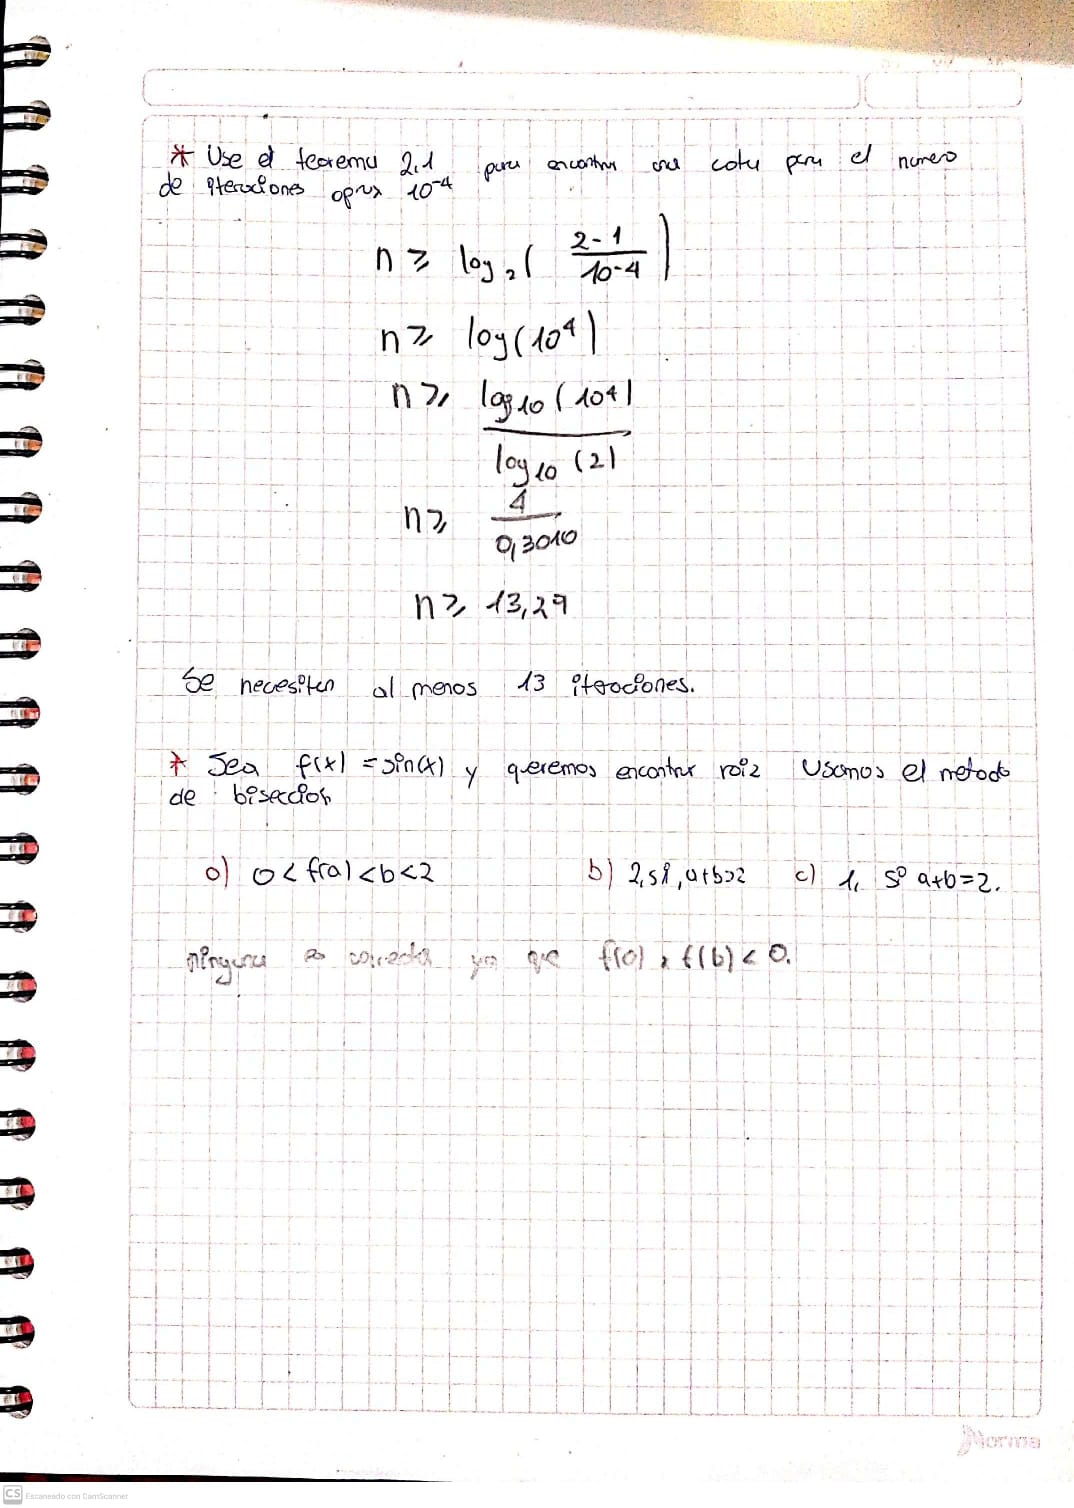 * Use el teorema 2,1 para encontrar una cota para el numero
de iteraciones aprox 10-4
n ≥ log2( 2-1 / 10-4 )
n ≥ log(10^4)
n ≥ log10(10^4)
log10(2)
n ≥ 4
0,3010
n ≥ 13,29
Se necesiten al menos 13 iteraciones.
* Sea f(x) = sin(x) y queremos encontrar raiz Usamos el metodo
de biseccion
a) 0 < f(a) < b < 2 b) 2, si, a+b>2 c) 1, si a+b=2.
ninguna es correcta ya que f(0) , f(b) < 0.
Norma
CS Escaneado con CamScanner